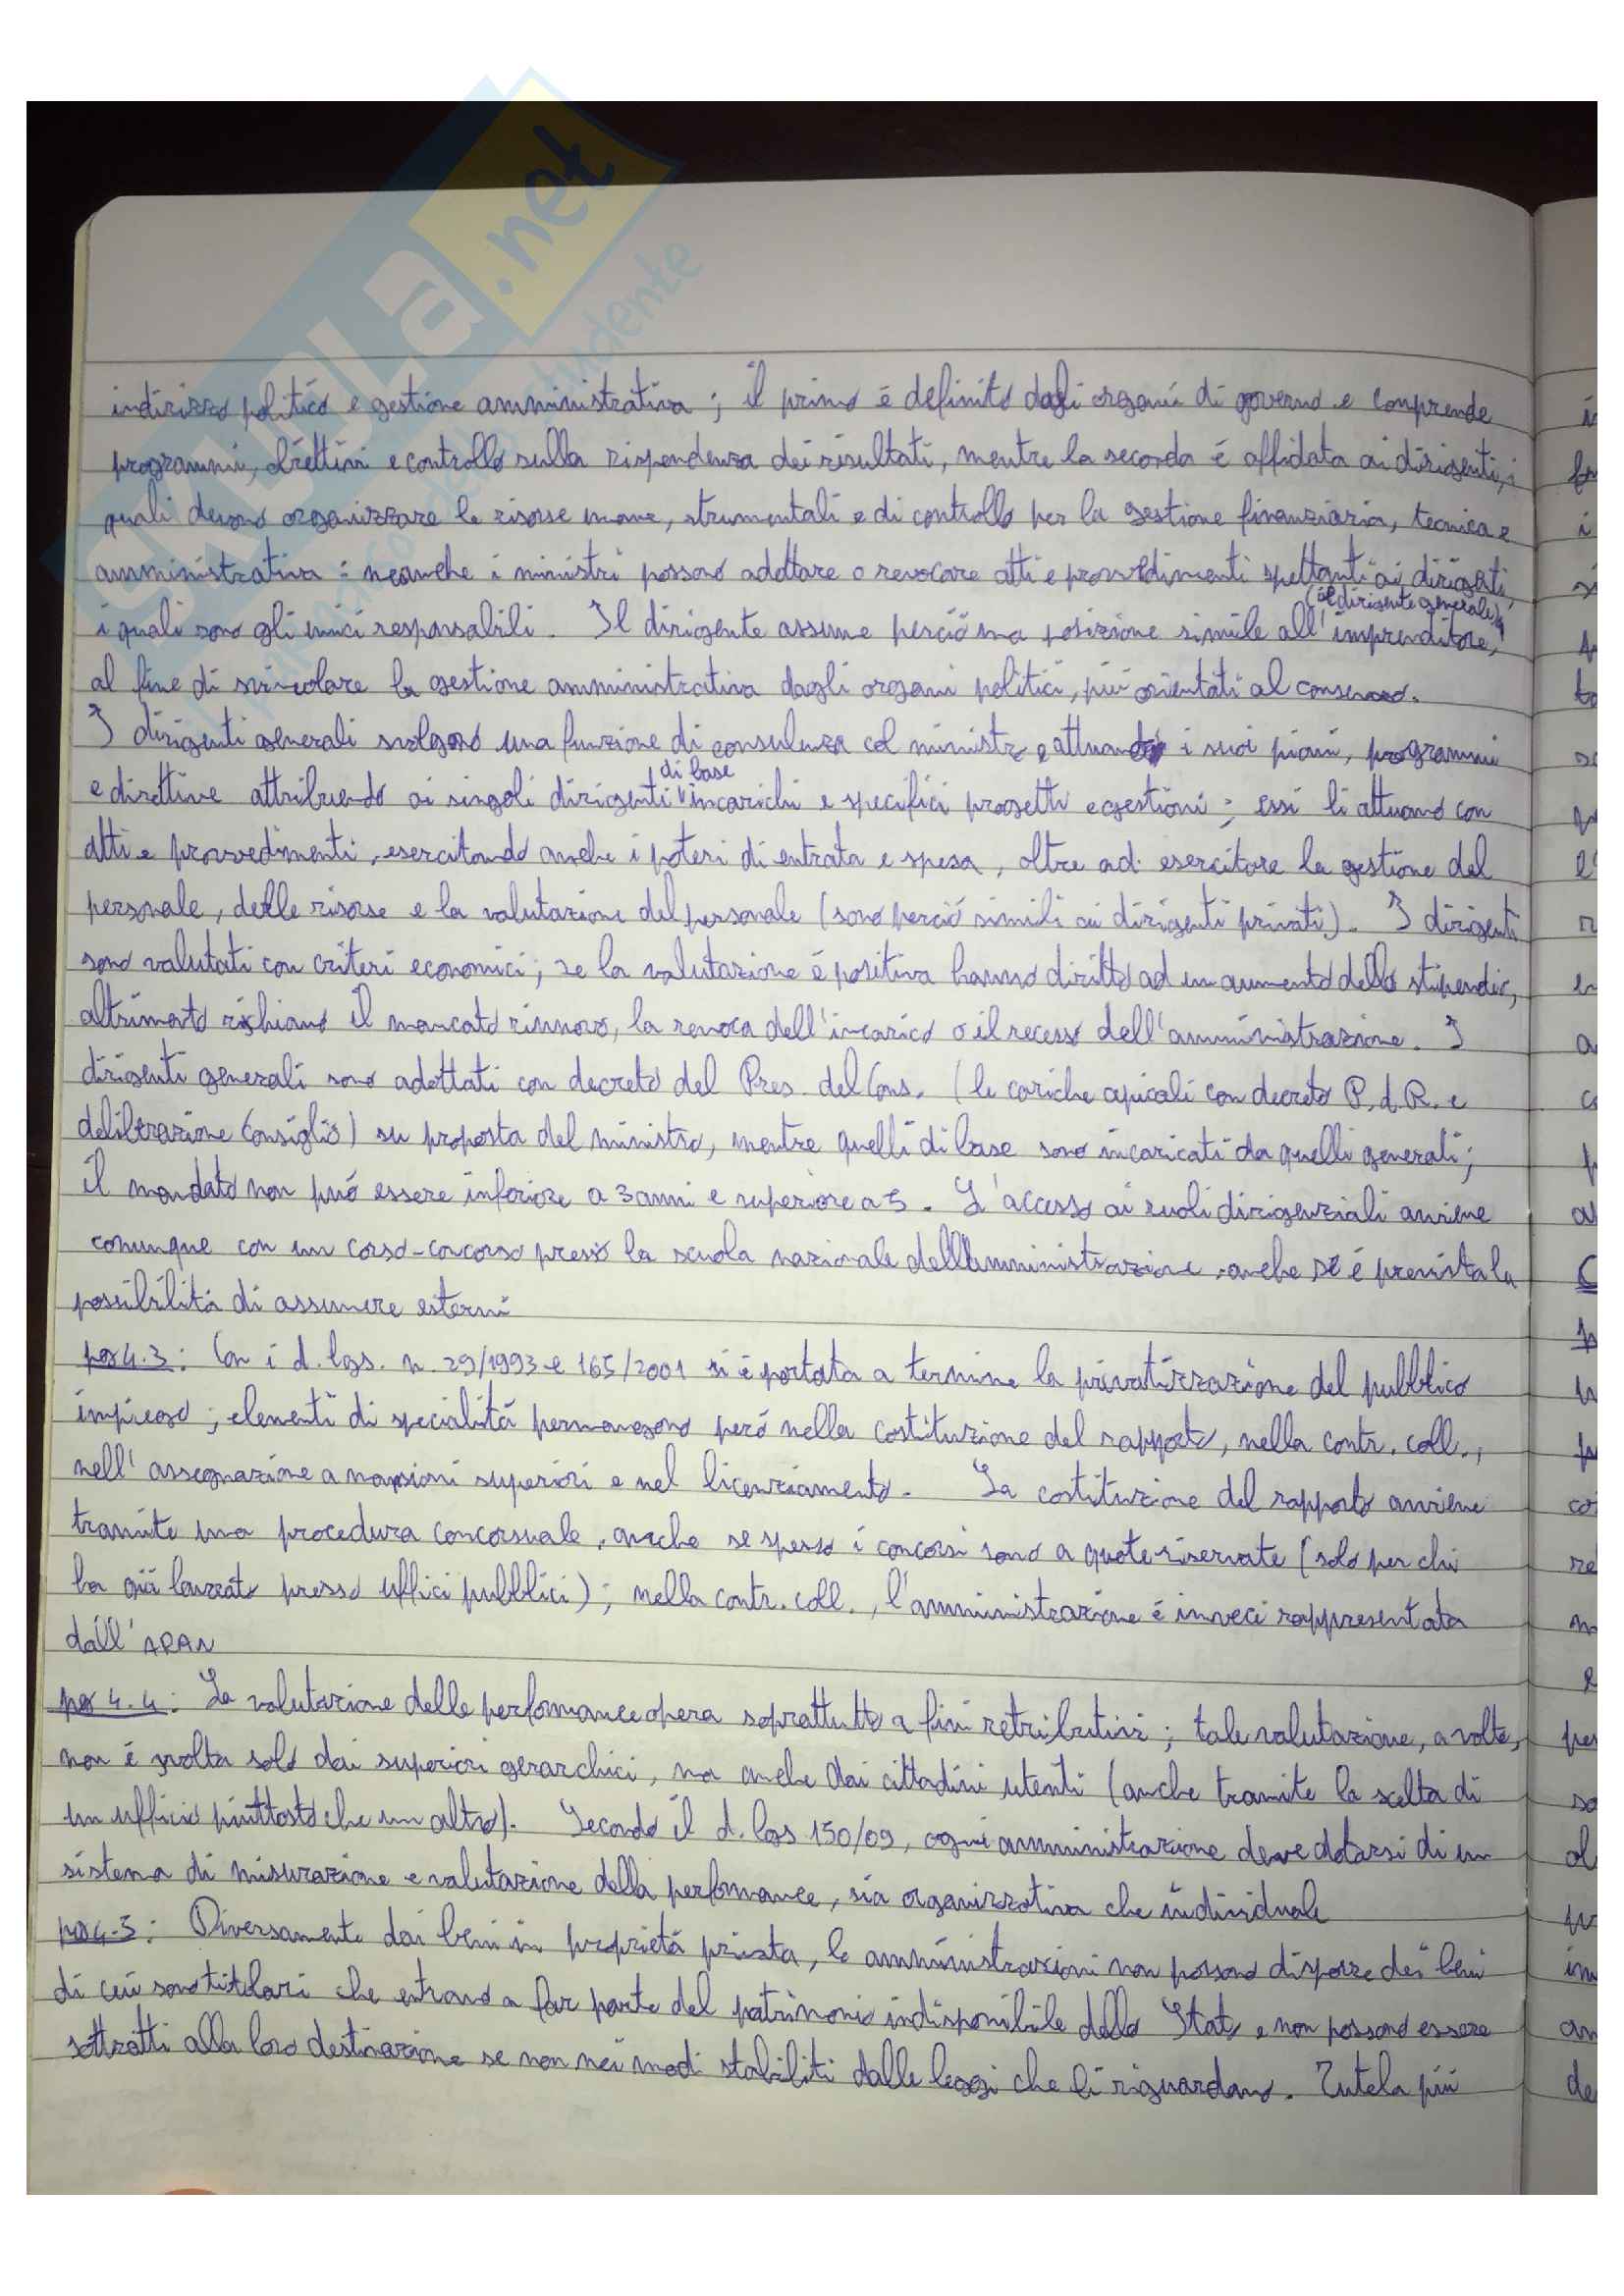 SKUOLa.net
indirizzo politico e gestione amministrativa; il primo é definito dagli organi di governo e comprende
programmi, direttivi e controllo sulla rispondenza dei risultati, mentre la seconda é affidata ai dirigenti, i
quali devono organizzare le risorse umane, strumentali e di controllo per la gestione finanziaria, tecnica e
amministrativa: neanche i ministri possono adottare o revocare atti e provvedimenti spettanti ai dirigenti,
i quali sono gli unici responsabili. Il dirigente assume perciò una posizione simile all'imprenditore, (il dirigente generale)
al fine di svincolare la gestione amministrativa dagli organi politici, più orientati al consenso.
I dirigenti generali svolgono una funzione di consulenza col ministro e attuano i suoi piani, programmi
e direttive attribuendo ai singoli dirigenti di base incarichi e specifici progetti e gestioni; essi li attuano con
atti e provvedimenti, esercitando anche i poteri di entrata e spesa, oltre ad esercitare la gestione del
personale, delle risorse e la valutazione del personale (sono perció simili ai dirigenti privati). I dirigenti
sono valutati con criteri economici; se la valutazione é positiva hanno diritto ad un aumento dello stipendio,
altrimenti rischiano il mancato rinnovo, la revoca dell'incarico o il recesso dell'amministrazione. I
dirigenti generali sono adottati con decreto del Pres. del Cons. (le cariche apicali con decreto P.d.R. e
deliberazione Consiglio) su proposta del ministro, mentre quelli di base sono incaricati da quelli generali;
il mandato non puó essere inferiore a 3 anni e superiore a 5. L'accesso ai ruoli dirigenziali avviene
comunque con un corso-concorso presso la scuola nazionale dell'amministrazione, anche se é prevista la
possibilitá di assumere esterni
4.3: Con i d. lgs. n. 29/1993 e 165/2001 si é portata a termine la privatizzazione del pubblico
impiego; elementi di specialitá permangono peró nella costituzione del rapporto, nella contr. coll.,
nell'assegnazione a mansioni superiori e nel licenziamento. La costituzione del rapporto avviene
tramite una procedura concorsuale, anche se spesso i concorsi sono a quote riservate (solo per chi
ha giá presso uffici pubblici); nella contr. coll., l'amministrazione é invece rappresentata
dall'ARAN
4.4: La valutazione delle performance opera soprattutto a fini retributivi; tale valutazione, a volte,
non é svolta solo dai superiori gerarchici, ma anche dai cittadini utenti (anche tramite la scelta di
un ufficio piuttosto che un altro). Secondo il d. lgs 150/09, ogni amministrazione deve dotarsi di un
sistema di misurazione e valutazione della performance, sia organizzativa che individuale
4.5: Diversamente dai beni in proprietá privata, le amministrazioni non possono disporre dei beni
di cui sono titolari che entrano a far parte del patrimonio indisponibile dello Stato e non possono essere
sottratti alla loro destinazione se non nei modi stabiliti dalle leggi che li riguardano. Tutela più